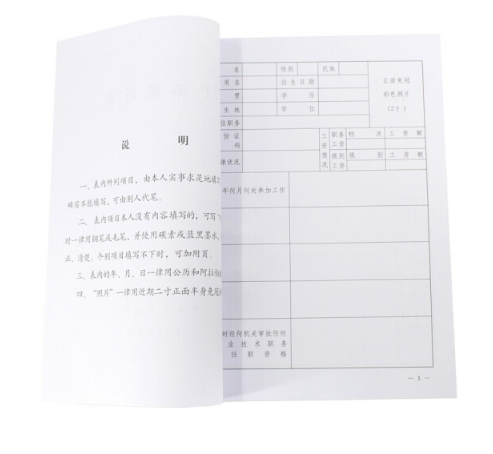 说 明
一、表内所列项目,由本人实事求是地填
确实不能填写,可由别人代笔。
二、表内项目本人没有内容填写的,可写
时一律用钢笔或毛笔,并使用碳素或蓝黑墨水,
正、清楚。个别项目填写不下时,可加附页。
三、表内的年、月、日一律用公历和阿拉伯
四、“照片”一律用近期二寸正面半身免冠
名 性别 民族
用名 出生日期
里 学历
生地 学位
位职务
正面免冠
彩色照片
(2寸)
份证
码
康状况
工资情况
职务工资 档次 工资额
级别工资 级别 工资额
年何月何处参加工作
时经何机关审批任何
业技术职务
任职资格
— 1 —